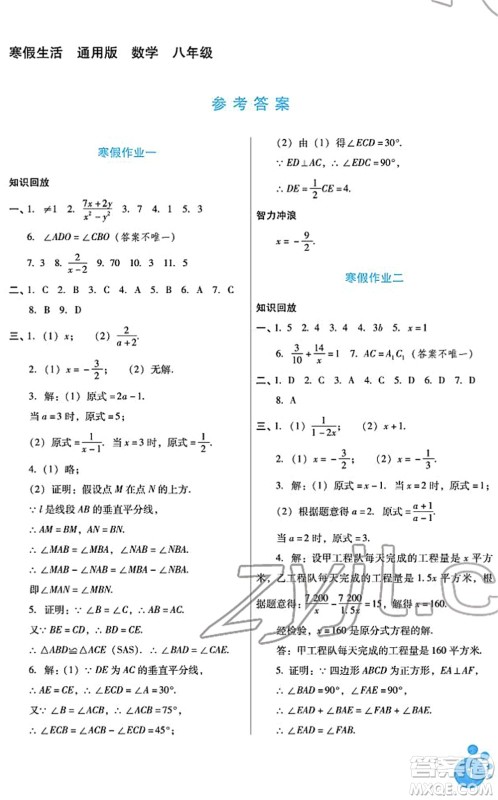 寒假生活 通用版 数学 八年级
参考答案
寒假作业一
知识回放
一、1. ≠1 2. (7x+2y)/(x²-y²) 3. 7 4. 1 5. 15
6. ∠ADO=∠CBO (答案不唯一)
7. 3 8. 2/(x-2) 9. 70 10. 3
二、1. C 2. B 3. C 4. A 5. D 6. A 7. C
8. B 9. D
三、1. (1) x; (2) 2/(a+2).
2. (1) x=-3/2; (2) 无解.
3. 解: (1) 原式=2a-1.
当 a=3 时, 原式=5;
(2) 原式=1/(x-1). 当 x=3 时, 原式=1/2.
4. (1) 略;
(2) 证明: 假设点 M 在点 N 的上方.
∵ l 是线段 AB 的垂直平分线,
∴ AM=BM, AN=BN.
∴ ∠MAB=∠MBA, ∠NAB=∠NBA.
∴ ∠MAB-∠NAB=∠MBA-∠NBA.
即∠MAN=∠MBN.
5. 证明: ∵ ∠1=∠2, ∴ ∠DAB=∠EAC.
又∵ BD=CE, ∠ABD=∠ACE,
∴ △ABD≌△ACE (SAS). ∴ ∠BAD=∠CAE.
6. 解: (1) ∵ DE 为 AC 的垂直平分线,
∴ AE=EC. ∴ ∠A=∠ACE=45°.
又∵ AB=AC, ∴ ∠B=∠ACB=75°,
∴ ∠ECB=∠ACB-∠ACE=75°-45°=30°.
(2) 由 (1) 得∠ECD=30°.
∵ ED⊥AC, ∴ ∠CDE=90°.
∴ DE=1/2CE=4.
智力冲浪
x=-9/2.
寒假作业二
知识回放
一、1. 5 2. 4 3. 2 4. 3b 5. x=1
6. 3/10+14/x=1 7. AC=A₁C₁ (答案不唯一)
二、1. D 2. C 3. A 4. D 5. B 6. C 7. D
8. A
三、1. (1) 1/(1-2x); (2) x+1.
2. (1) x=-3/2; (2) x=-1/5.
3. 解: (2) 根据题意得 a=2. 原式=(a+1)/(a-1).
当 a=2 时, 原式=3.
4. 解: 设甲工程队每天完成的工程量是 x 平方
米, 乙工程队每天完成的工程量是 1.5x 平方米, 根
据题意得: 7 200/x-7 200/1.5x=15, 解得: x=160.
经检验, x=160 是原分式方程的解.
答: 甲工程队每天完成的工程量是 160 平方米.
5. 证明: ∵ 四边形 ABCD 为正方形, EA⊥AF,
∴ ∠BAD=90°, ∠FAE=90°.
∴ ∠BAE=∠FAD.
∵ ∠ABE=∠ADF=90°, AB=AD,
zyjl.c
答案圈
MXQE.COM